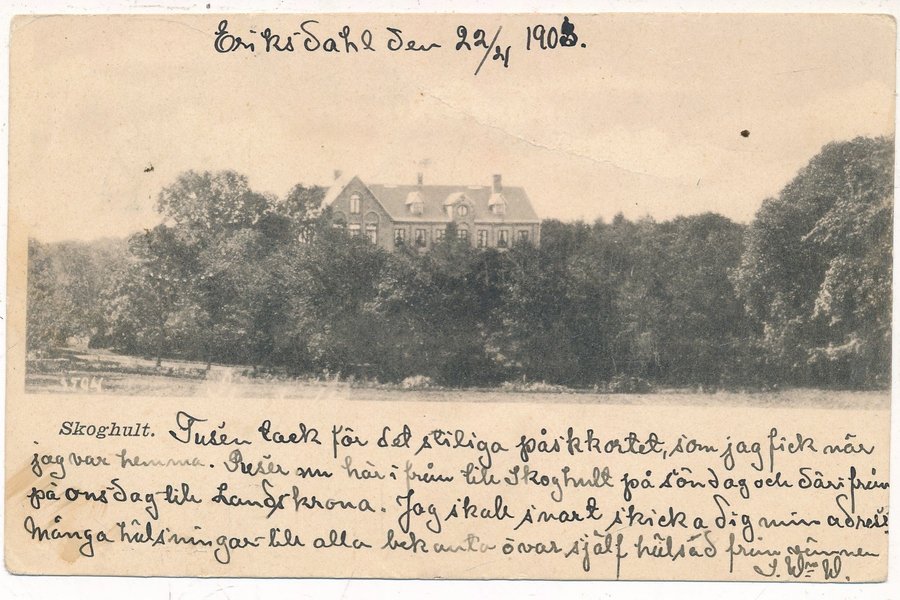 Eriksdahl den 22/4 1903.
Skoghult. Tusen tack för det stiliga påskkortet, som jag fick när
jag var hemma. Reser nu här i från till Skoghult på söndag och därifrån
på onsdag till Landskrona. Jag skall snart skicka dig min adress
Många hälsningar till alla bekanta ö var själf hälsad från vännen